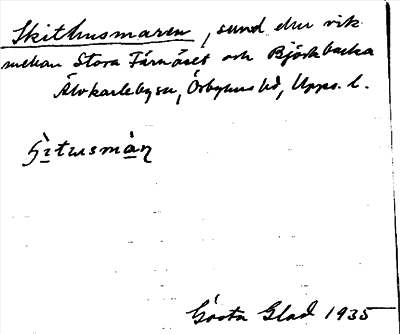 Skithusmaren, sund eller vik
mellan Stora Tärnöset och Björkbacka
Älvkarleby sn, Örbyhus hd, Upps. l.
Gösta Glad 1935